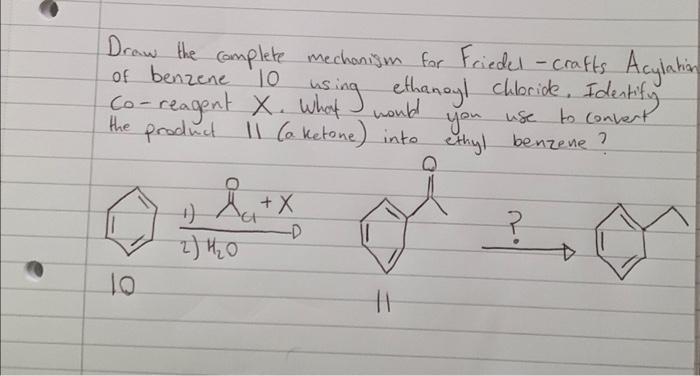 Draw the complete mechanism for Friedel-crafts Acylation
of benzene 10 using ethanoyl chloride. Identify
Co-reagent X. What would you use to convert
the product 11 (a ketone) into ethyl benzene?
O
O
1) Cl + X
?
2) H₂O
10
11